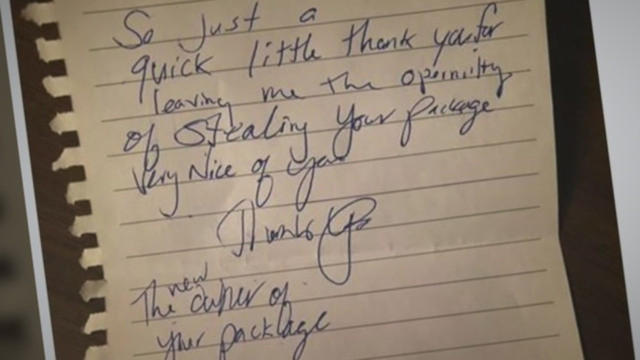 So Just a
quick little thank you for
leaving me the opornilty
of Stealing your package
Very Nice of you
Thanks
new
The owner of
your package